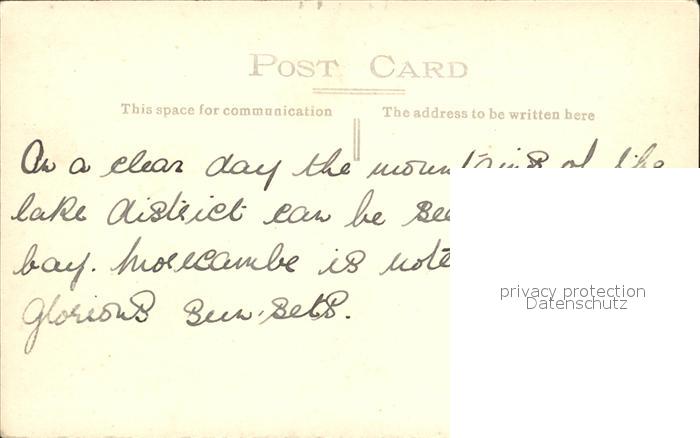 POST CARD
This space for communication The address to be written here
On a clear day the mountains of the
lake district can be see
bay. Morecambe is note
glorious sun-sets.
privacy protection
Datenschutz